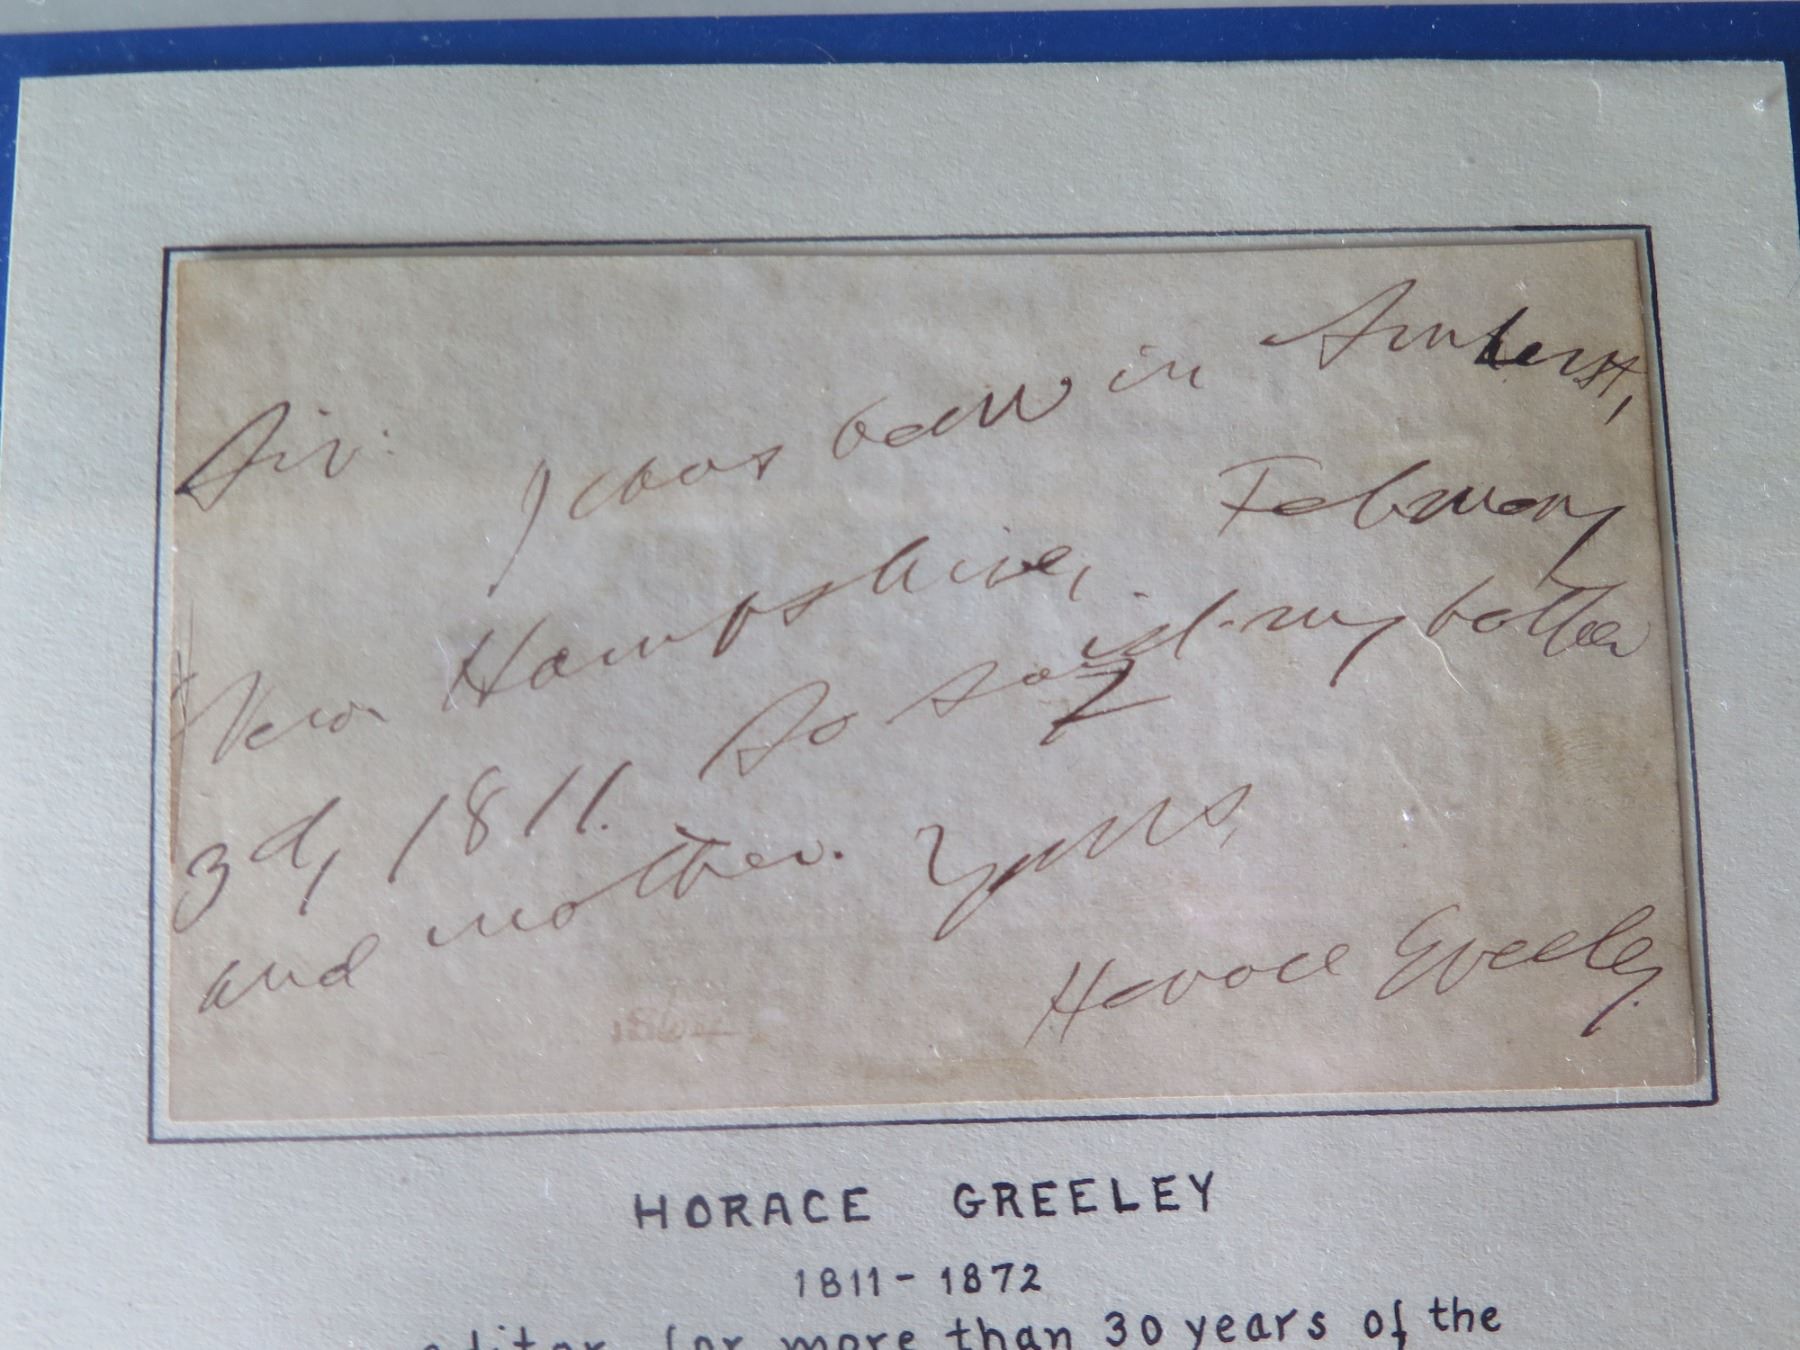 Sir:
I was born in Amherst,
New Hampshire, February
3d, 1811. So said my father
and mother. Yours,
Horace Greeley.
HORACE GREELEY
1811-1872
editor for more than 30 years of the